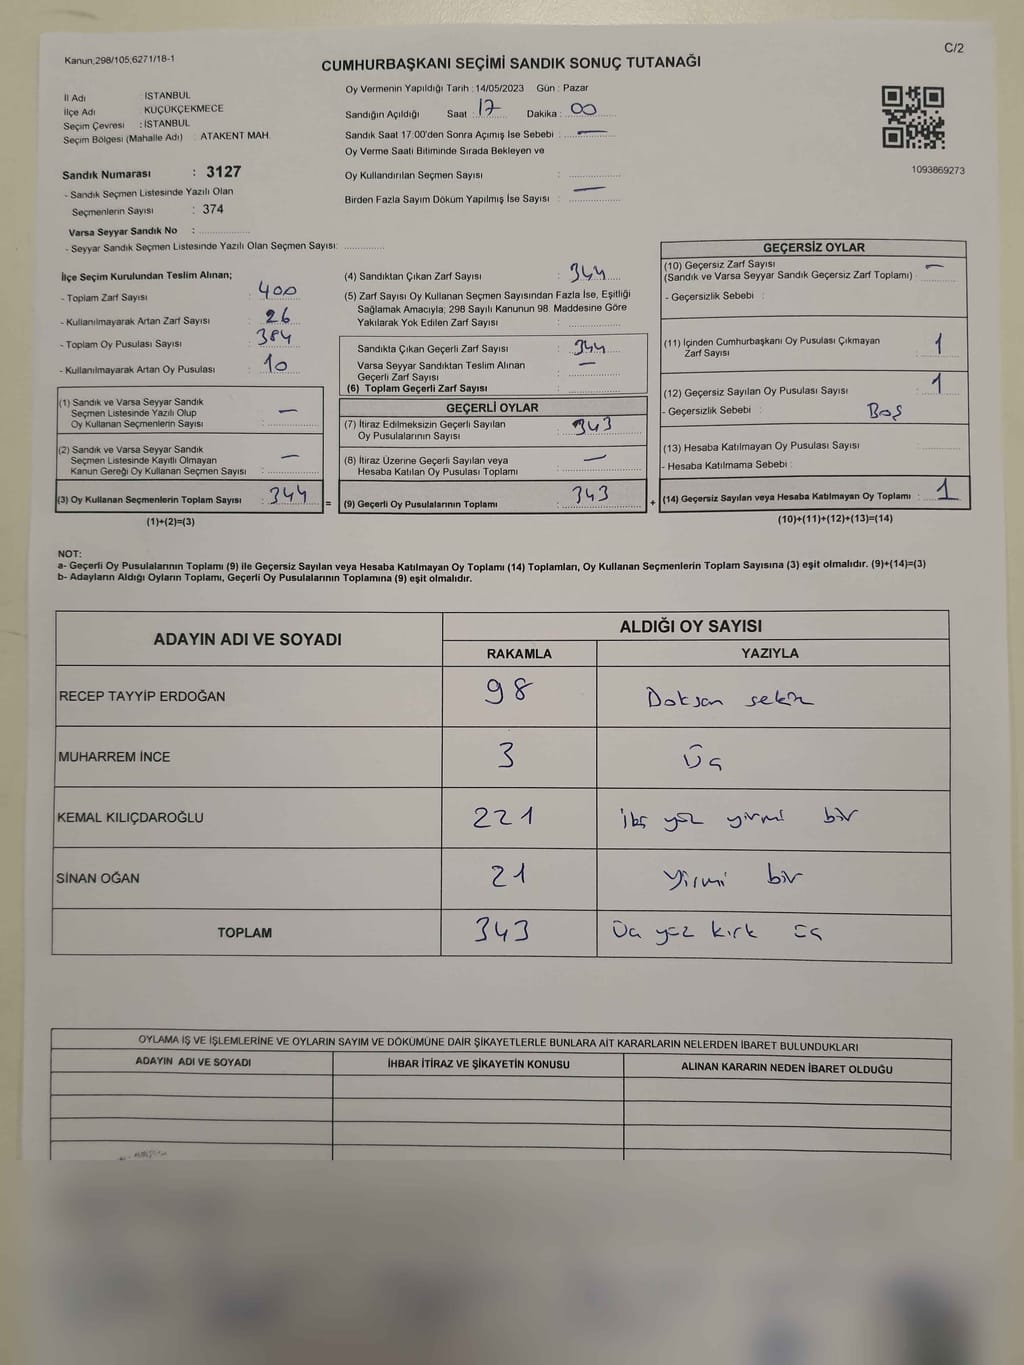 Kanun,298/105,6271/18-1
C/2
CUMHURBAŞKANI SEÇİMİ SANDIK SONUÇ TUTANAĞI
İl Adı : İSTANBUL
İlçe Adı KÜÇÜKÇEKMECE
Seçim Çevresi : İSTANBUL
Seçim Bölgesi (Mahalle Adı) : ATAKENT MAH.
Sandık Numarası : 3127
- Sandık Seçmen Listesinde Yazılı Olan
Seçmenlerin Sayısı : 374
Varsa Seyyar Sandık No :
- Seyyar Sandık Seçmen Listesinde Yazılı Olan Seçmen Sayısı:
Oy Vermenin Yapıldığı Tarih : 14/05/2023 Gün : Pazar
Sandığın Açıldığı Saat : 17 Dakika : 00
Sandık Saat 17:00'den Sonra Açımış İse Sebebi : —
Oy Verme Saati Bitiminde Sırada Bekleyen ve
Oy Kullandırılan Seçmen Sayısı :
Birden Fazla Sayım Döküm Yapılmış İse Sayısı : —
1093869273
İlçe Seçim Kurulundan Teslim Alınan;
- Toplam Zarf Sayısı : 400
- Kullanılmayarak Artan Zarf Sayısı : 26
- Toplam Oy Pusulası Sayısı : 384
- Kullanılmayarak Artan Oy Pusulası : 10
(1) Sandık ve Varsa Seyyar Sandık
Seçmen Listesinde Yazılı Olup
Oy Kullanan Seçmenlerin Sayısı : —
(2) Sandık ve Varsa Seyyar Sandık
Seçmen Listesinde Kayıtlı Olmayan
Kanun Gereği Oy Kullanan Seçmen Sayısı : —
(3) Oy Kullanan Seçmenlerin Toplam Sayısı : 344
(1)+(2)=(3)
=
(4) Sandıktan Çıkan Zarf Sayısı : 344
(5) Zarf Sayısı Oy Kullanan Seçmen Sayısından Fazla İse, Eşitliği
Sağlamak Amacıyla; 298 Sayılı Kanunun 98. Maddesine Göre
Yakılarak Yok Edilen Zarf Sayısı :
Sandıkta Çıkan Geçerli Zarf Sayısı : 344
Varsa Seyyar Sandıktan Teslim Alınan
Geçerli Zarf Sayısı : —
(6) Toplam Geçerli Zarf Sayısı :
GEÇERLİ OYLAR
(7) İtiraz Edilmeksizin Geçerli Sayılan
Oy Pusulalarının Sayısı : 343
(8) İtiraz Üzerine Geçerli Sayılan veya
Hesaba Katılan Oy Pusulası Toplamı : —
(9) Geçerli Oy Pusulalarının Toplamı : 343
+
GEÇERSİZ OYLAR
(10) Geçersiz Zarf Sayısı
(Sandık ve Varsa Seyyar Sandık Geçersiz Zarf Toplamı) : —
- Geçersizlik Sebebi :
(11) İçinden Cumhurbaşkanı Oy Pusulası Çıkmayan
Zarf Sayısı : 1
(12) Geçersiz Sayılan Oy Pusulası Sayısı : 1
- Geçersizlik Sebebi : Boş
(13) Hesaba Katılmayan Oy Pusulası Sayısı
- Hesaba Katılmama Sebebi :
(14) Geçersiz Sayılan veya Hesaba Katılmayan Oy Toplamı : 1
(10)+(11)+(12)+(13)=(14)
NOT:
a- Geçerli Oy Pusulalarının Toplamı (9) ile Geçersiz Sayılan veya Hesaba Katılmayan Oy Toplamı (14) Toplamları, Oy Kullanan Seçmenlerin Toplam Sayısına (3) eşit olmalıdır. (9)+(14)=(3)
b- Adayların Aldığı Oyların Toplamı, Geçerli Oy Pusulalarının Toplamına (9) eşit olmalıdır.
ADAYIN ADI VE SOYADI ALDIĞI OY SAYISI
RAKAMLA YAZIYLA
RECEP TAYYİP ERDOĞAN 98 Doksan sekiz
MUHARREM İNCE 3 Üç
KEMAL KILIÇDAROĞLU 221 İki yüz yirmi bir
SİNAN OĞAN 21 Yirmi bir
TOPLAM 343 Üç yüz kırk üç
OYLAMA İŞ VE İŞLEMLERİNE VE OYLARIN SAYIM VE DÖKÜMÜNE DAİR ŞİKAYETLERLE BUNLARA AİT KARARLARIN NELERDEN İBARET BULUNDUKLARI
ADAYIN ADI VE SOYADI İHBAR İTİRAZ VE ŞİKAYETİN KONUSU ALINAN KARARIN NEDEN İBARET OLDUĞU